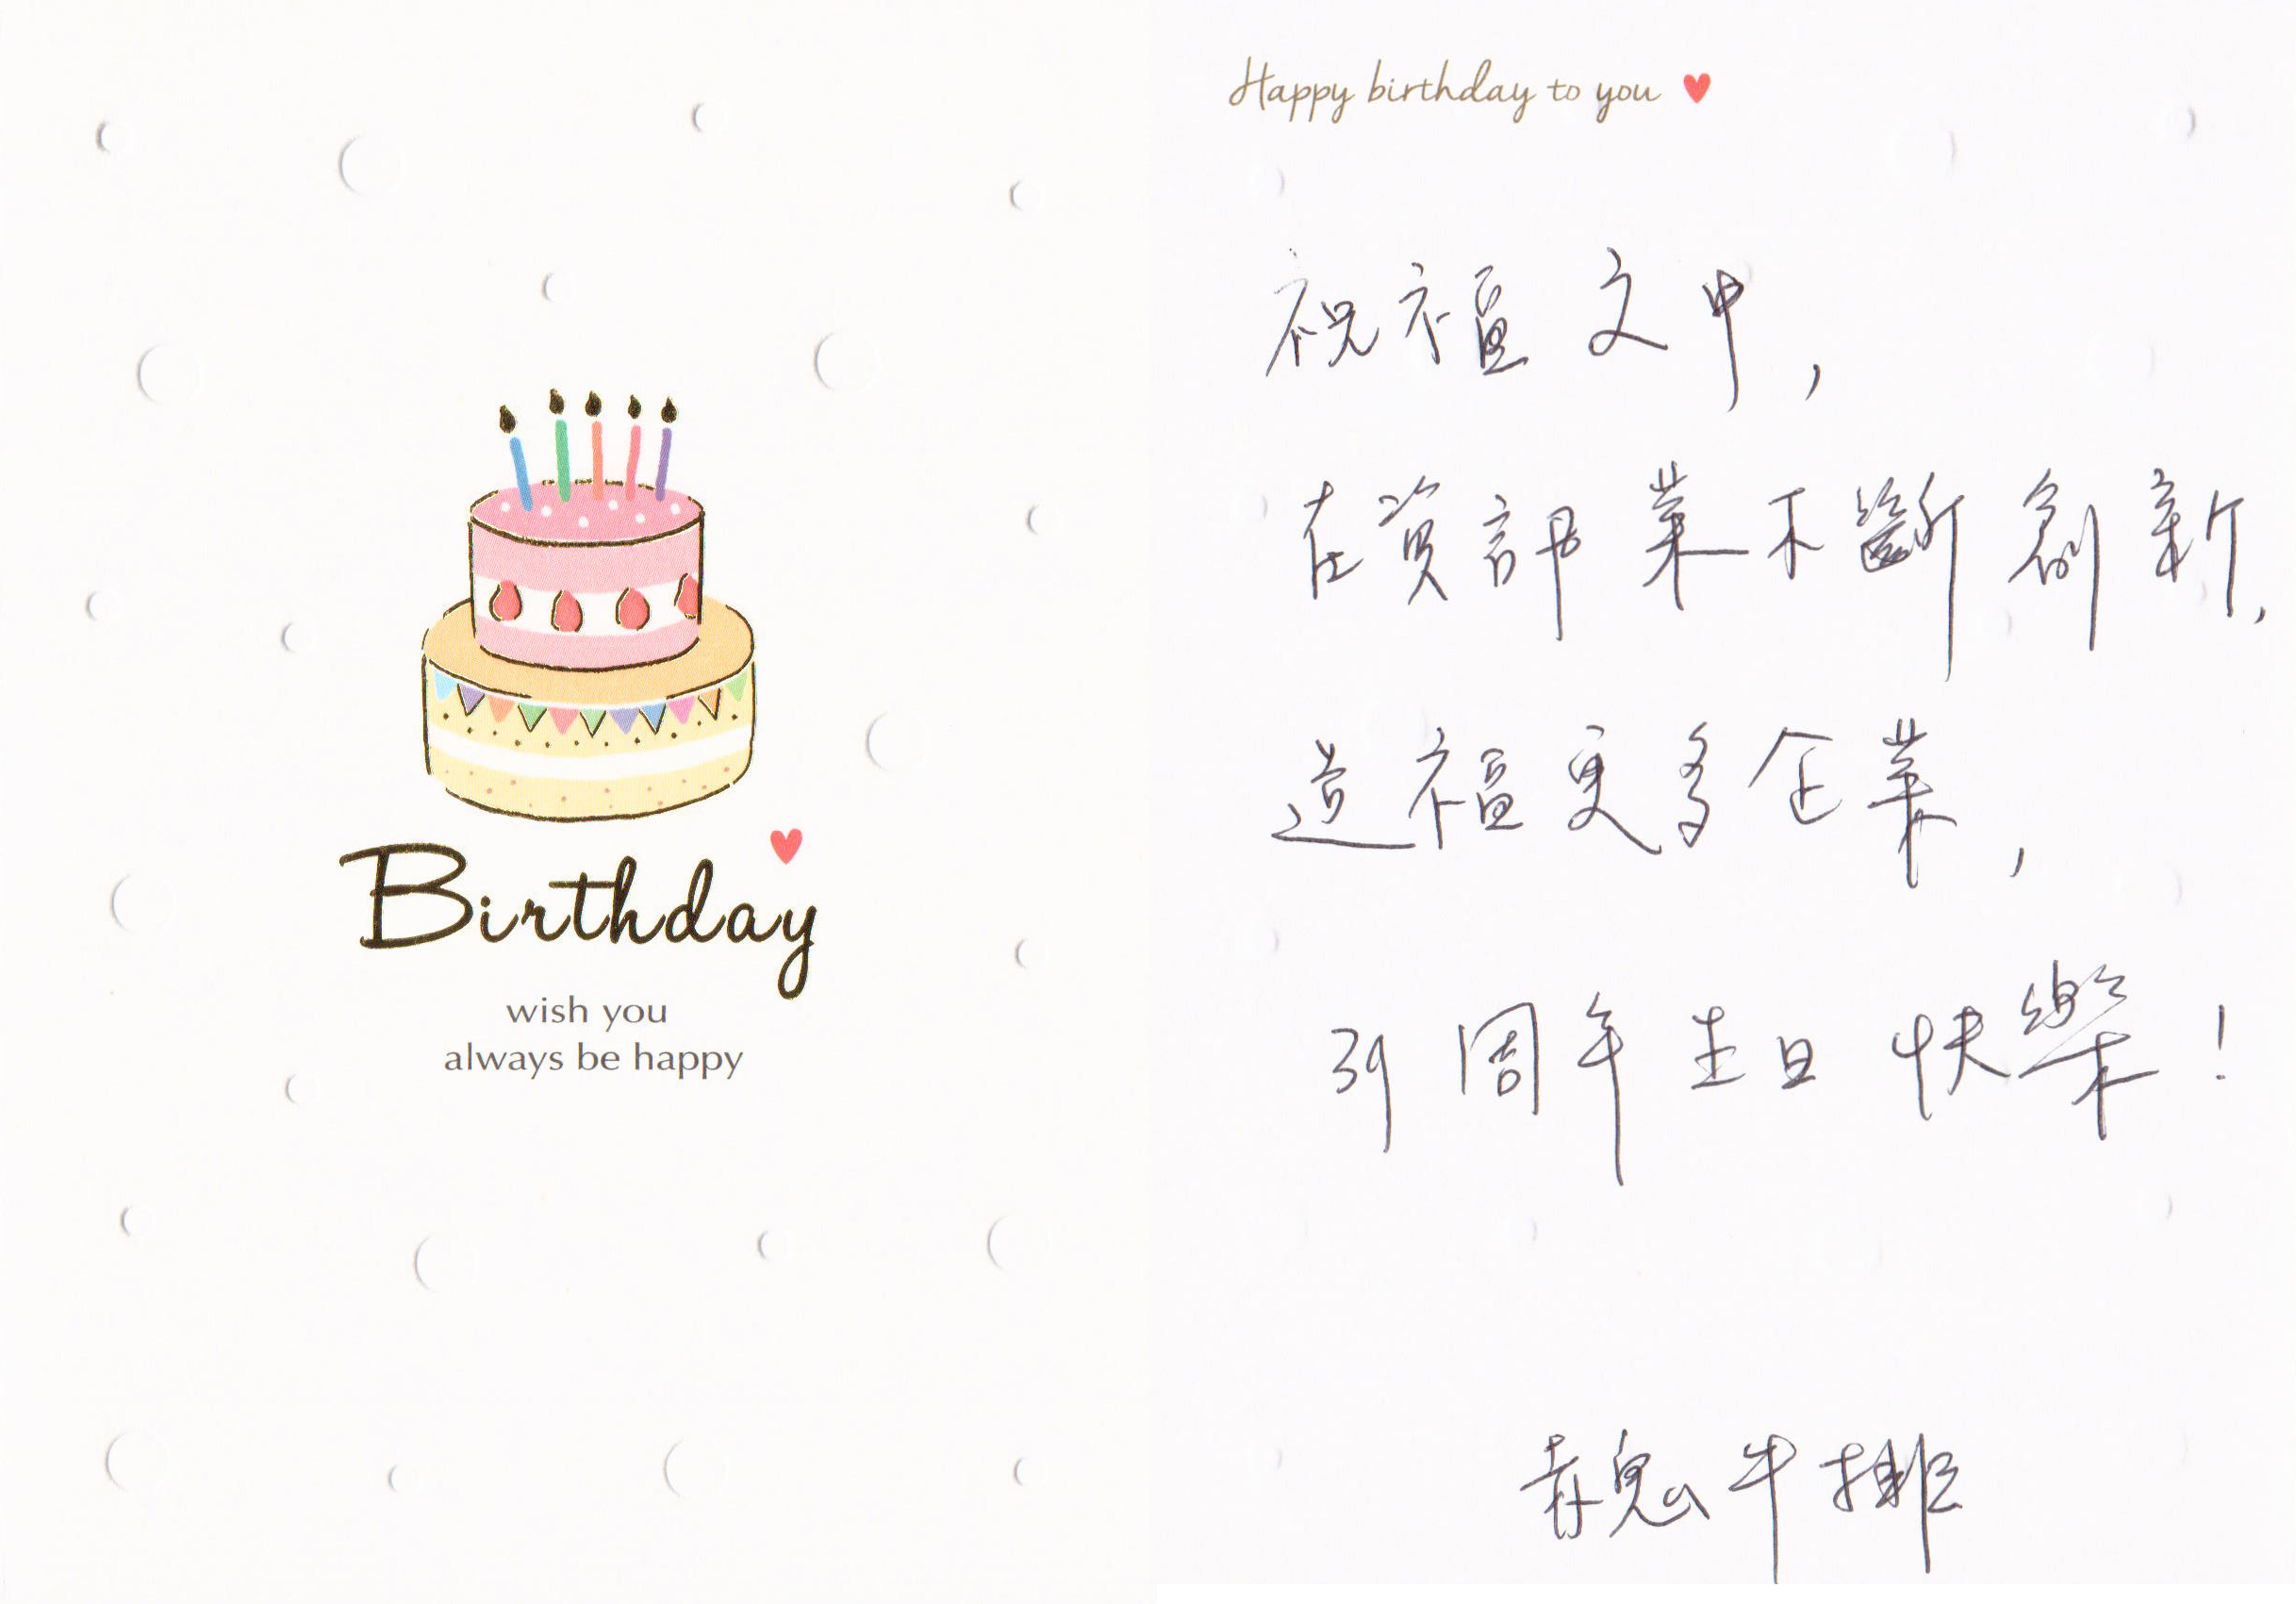 Birthday
wish you
always be happy
Happy birthday to you
祝福 文中,
在資訊業不斷創新,
造福更多企業,
39 周年生日快樂!
赤鬼牛排